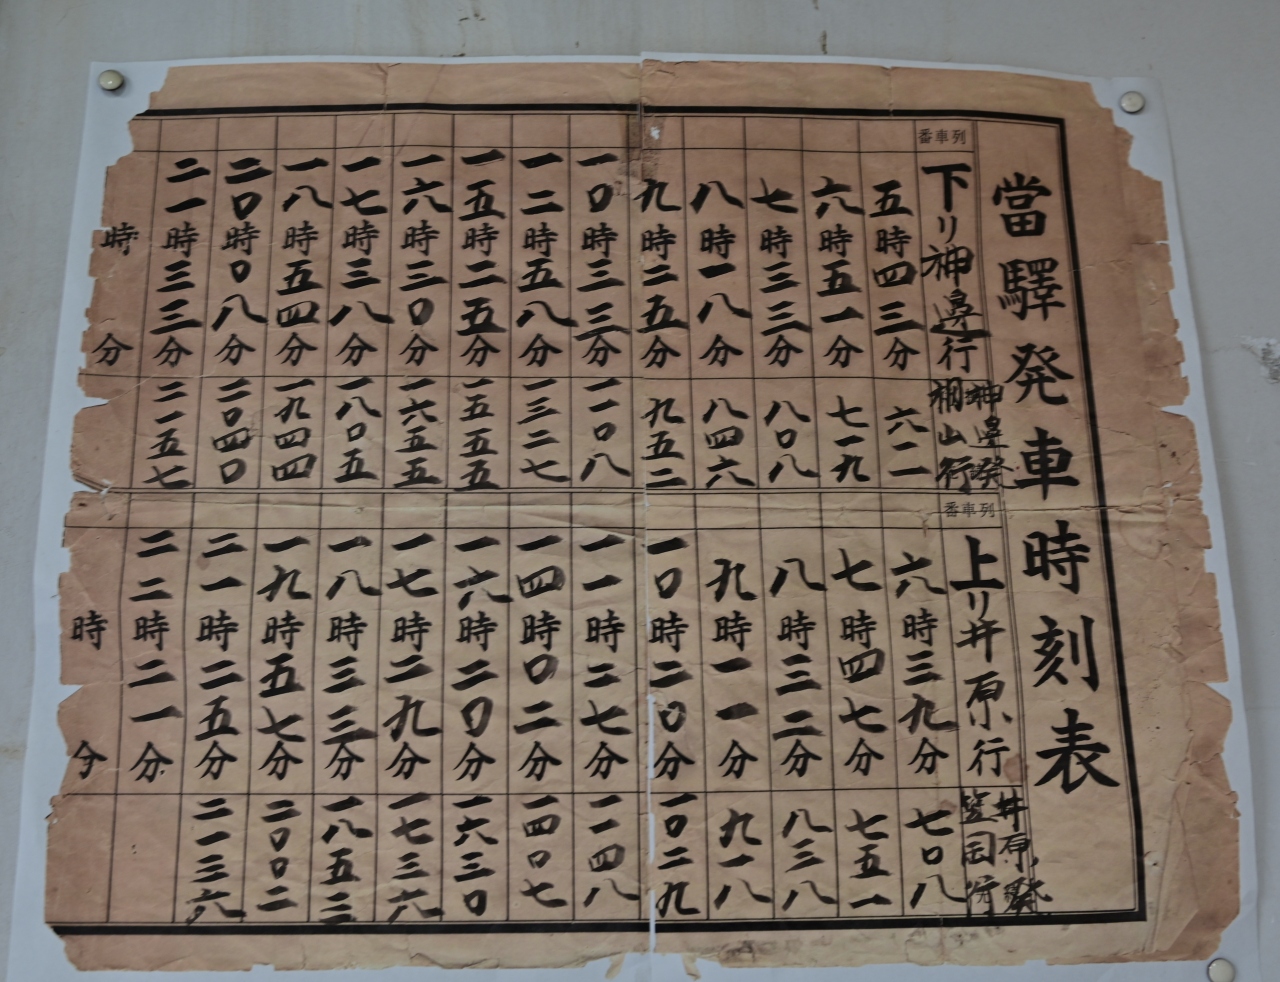 當驛発車時刻表
列車番
下リ神邊行
神邊発福山行
五時四三分
六二一
六時五一分
七一九
七時三三分
八〇八
八時一八分
八四六
九時二五分
九五二
一〇時三三分
一一〇八
一二時五八分
一三二七
一五時二五分
一五五五
一六時三〇分
一六五五
一七時三八分
一八〇五
一八時五四分
一九四四
二〇時〇八分
二〇四〇
二一時三三分
二一五七
時 分
列車番
上リ井原行
井原発笠岡行
六時三九分
七〇八
七時四七分
七五一
八時三二分
八三八
九時一一分
九一八
一〇時二〇分
一〇二九
一一時三七分
一一四八
一四時〇二分
一四〇七
一六時二〇分
一六三〇
一七時二九分
一七三六
一八時三三分
一八五三
一九時五七分
二〇〇二
二一時二五分
二一三六
二二時二一分
時 分